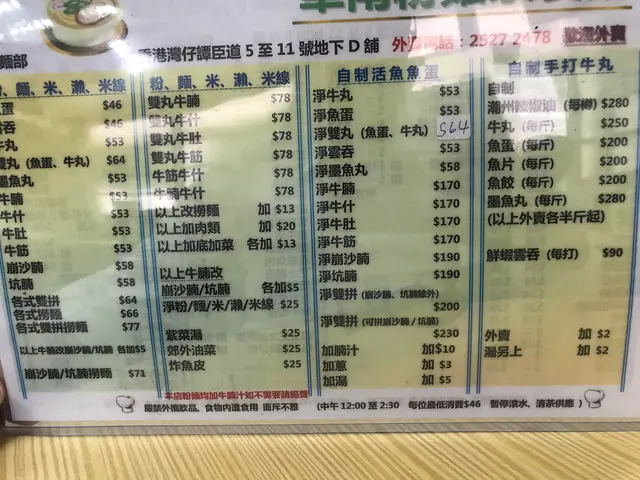 香港灣仔譚臣道 5 至 11 號地下 D 舖 外賣電話：2527 2478 歡迎外賣
麵部
粉、麵、米、瀨、米線
蛋 $46
吞 $46
丸 $53
雙丸 (魚蛋、牛丸) $64
墨魚丸 $53
牛腩 $53
牛什 $53
牛肚 $53
牛筋 $53
崩沙腩 $58
坑腩 $58
各式雙拼 $64
各式撈麵 $66
各式雙拼撈麵 $77
以上牛腩改崩沙腩/坑腩 各加$5
崩沙腩/坑腩撈麵 $71
粉、麵、米、瀨、米線
雙丸牛腩 $78
雙丸牛什 $78
雙丸牛肚 $78
雙丸牛筋 $78
牛筋牛什 $78
牛腩牛什 $78
以上改撈麵 加 $13
以上加肉類 加 $20
以上加底加菜 各加 $13
以上牛腩改
崩沙腩/坑腩 各加$5
淨粉/麵/米/瀨/米線 $25
紫菜湯 $25
郊外油菜 $25
炸魚皮 $25
自制活魚魚蛋
淨牛丸 $53
淨魚蛋 $53
淨雙丸 (魚蛋、牛丸) $64
淨雲吞 $53
淨墨魚丸 $58
淨牛腩 $170
淨牛什 $170
淨牛肚 $170
淨牛筋 $170
淨崩沙腩 $190
淨坑腩 $190
淨雙拼 (崩沙腩、坑腩除外)
$200
淨雙拼 (可拼崩沙腩 / 坑腩)
$230
加腩汁 加$10
加蔥 加 $3
加湯 加 $5
自制手打牛丸
自制
潮州辣椒油 (每樽) $280
牛丸 (每斤) $250
魚蛋 (每斤) $200
魚片 (每斤) $200
魚餃 (每斤) $200
墨魚丸 (每斤) $280
(以上外賣各半斤起)
鮮蝦雲吞 (每打) $90
外賣 加 $2
湯另上 加 $2
本店粉麵均加牛腩汁如不需要請揚聲
嚴禁外攜飲品、食物內進食用 面斥不雅 (中午 12:00 至 2:30 每位最低消費$46 暫停滾水、清茶供應 )